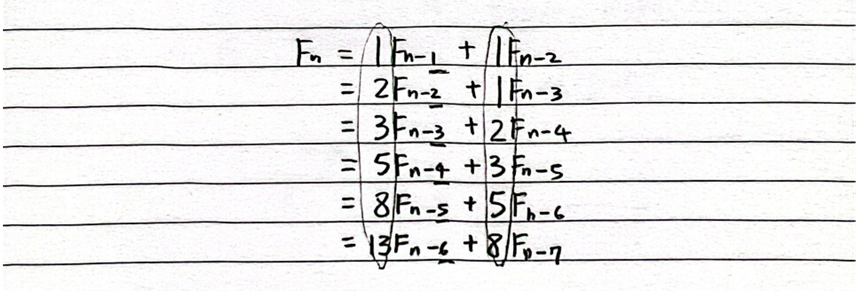 Fn = 1Fn-1 + 1Fn-2
= 2Fn-2 + 1Fn-3
= 3Fn-3 + 2Fn-4
= 5Fn-4 + 3Fn-5
= 8Fn-5 + 5Fn-6
= 13Fn-6 + 8Fn-7